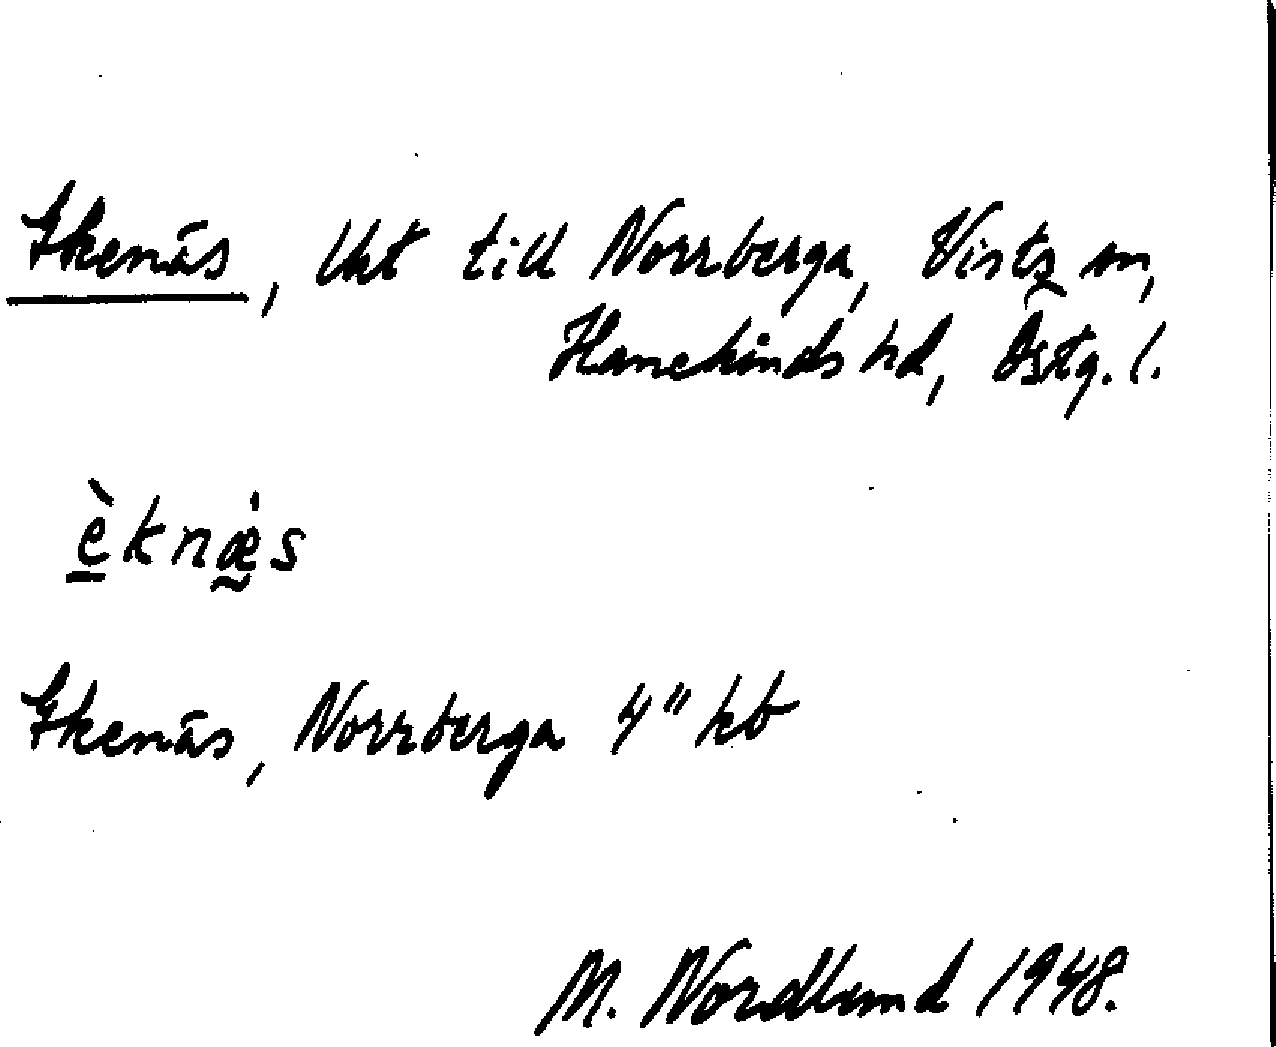 Ekenäs, Uht till Norrberga, Vists sn,
Hanekinds hd, Östg. l.
èknæ̀s
Ekenäs, Norrberga 4" kb
M. Nordlund 1948.